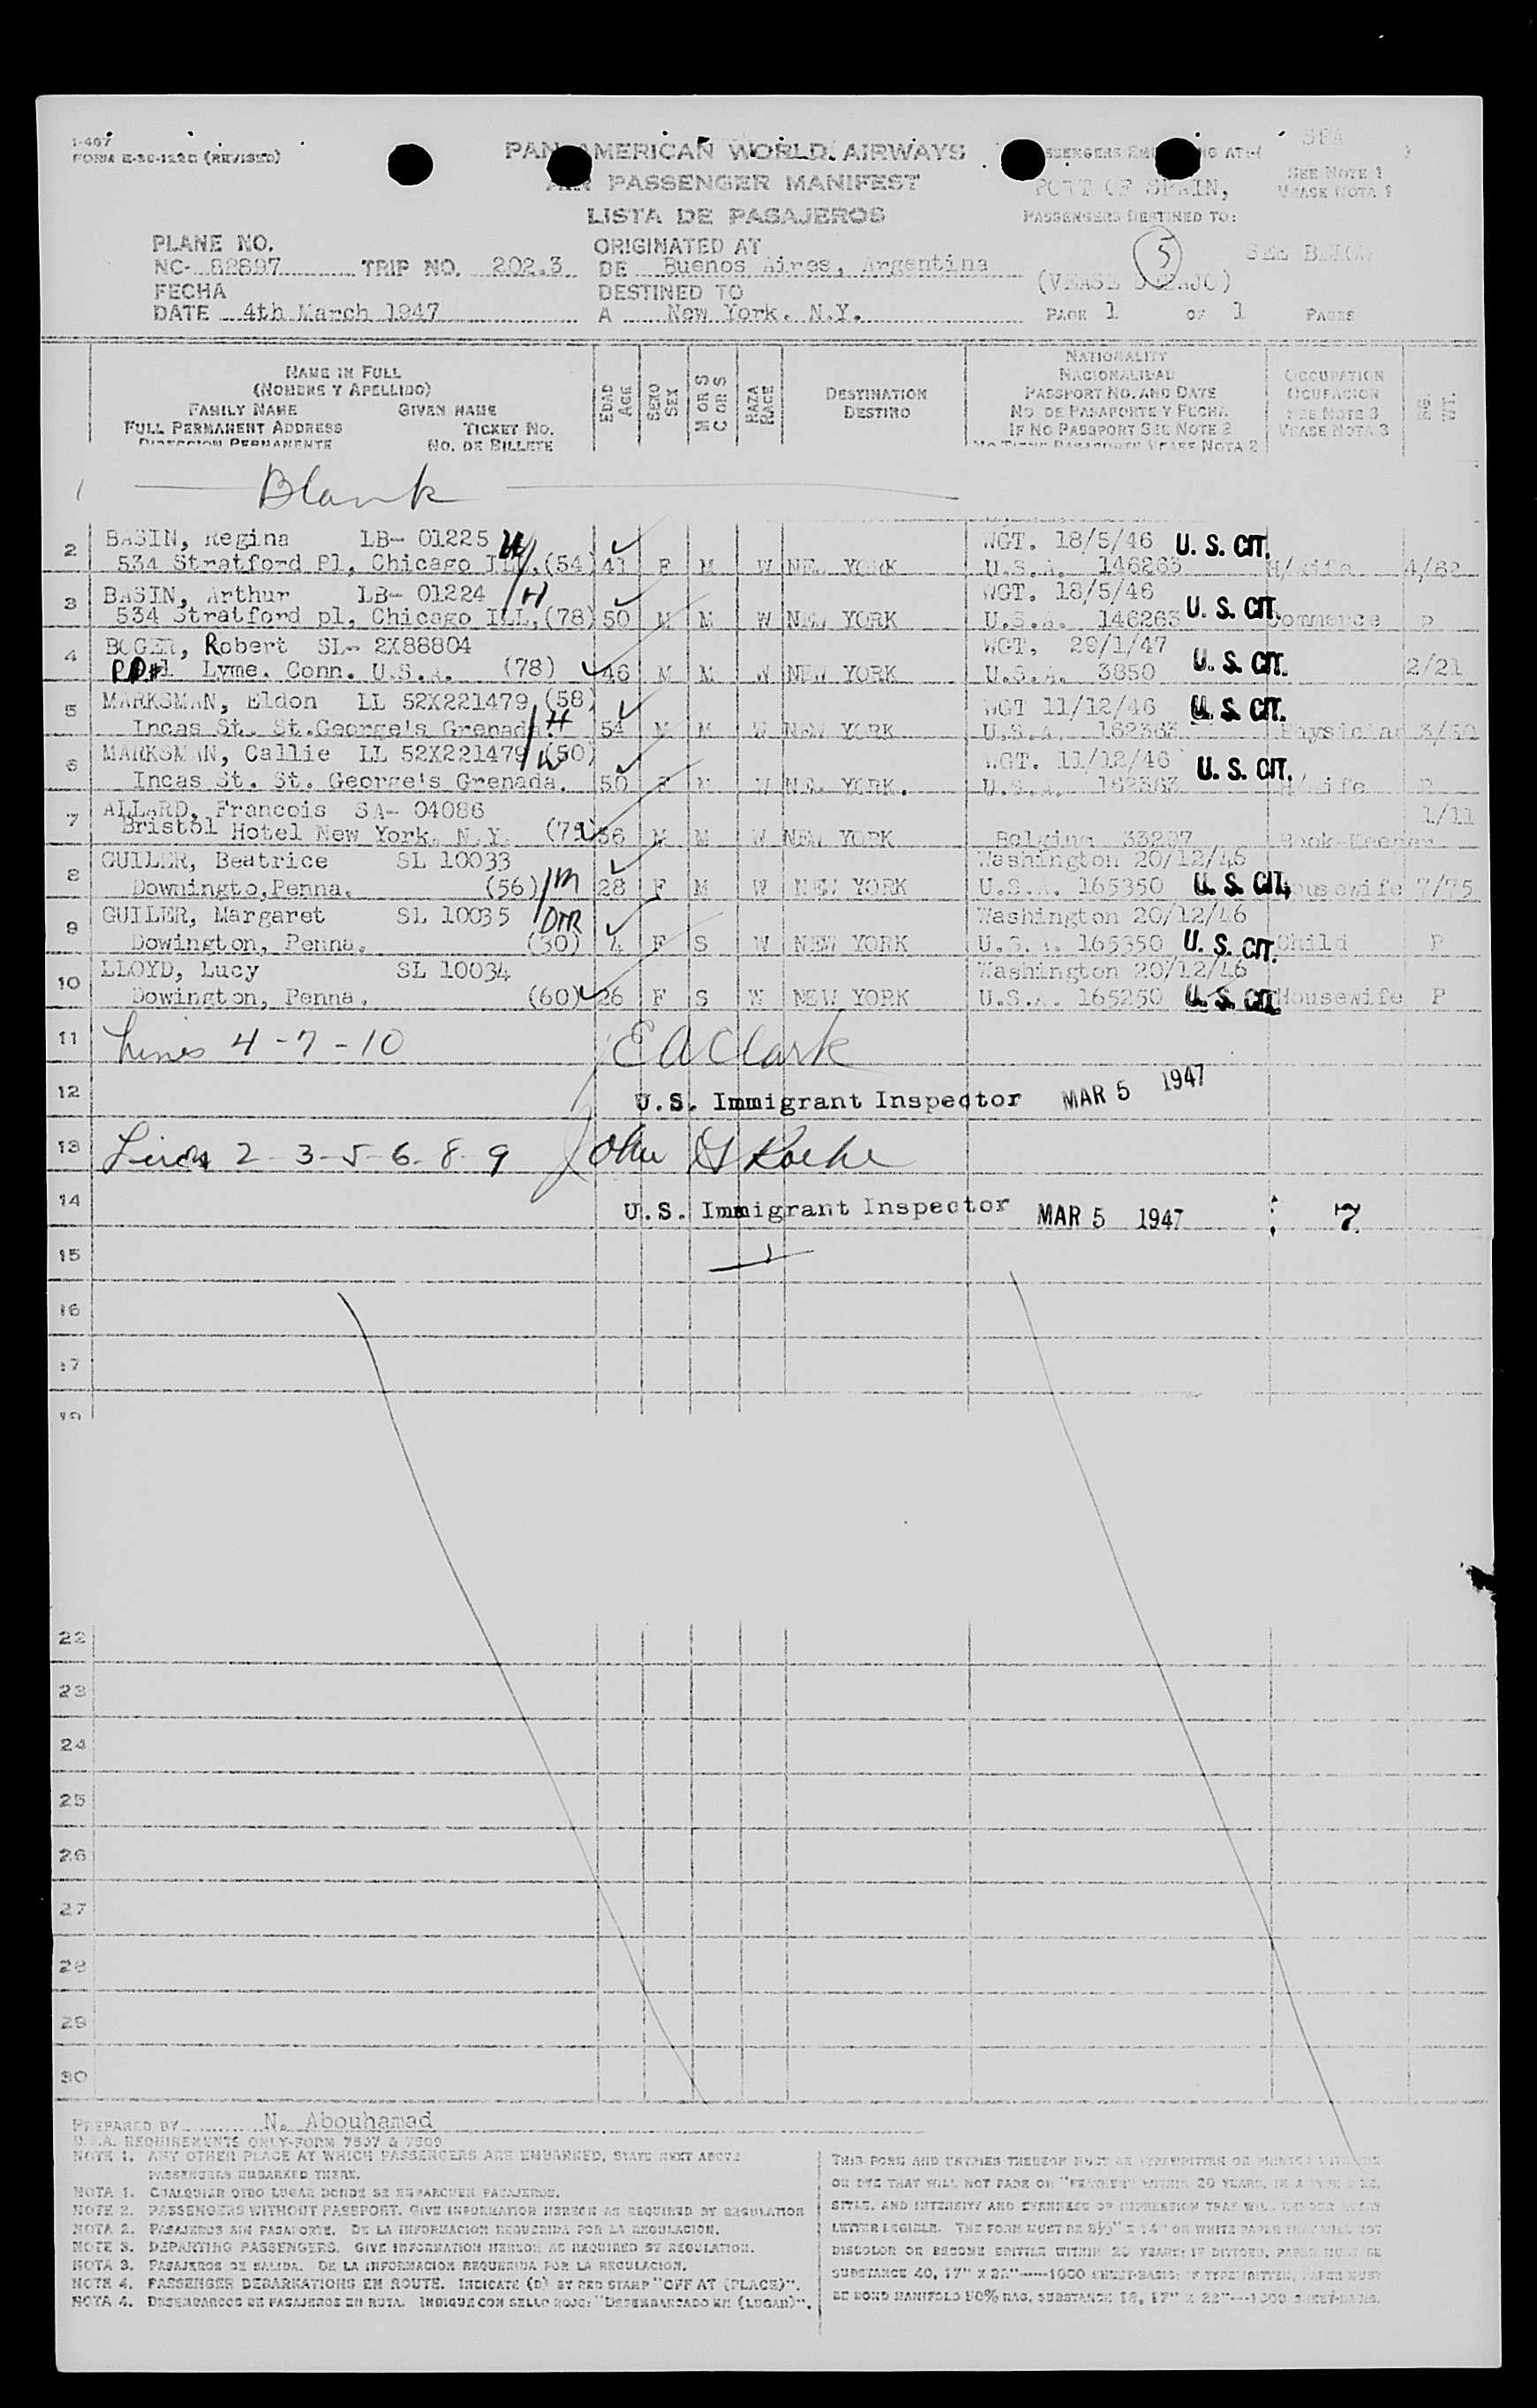 I-467
FORM E-30-122C (REVISED)
PAN AMERICAN WORLD AIRWAYS
AIR PASSENGER MANIFEST
LISTA DE PASAJEROS
PASSENGERS EMBARKING AT:( SPA )
PORT OF SPAIN,
SEE NOTE 1
VEASE NOTA 1
PASSENGERS DESTINED TO:
5 SEE BELOW
(VEASE DEBAJO)
PAGE 1 OF 1 PAGES
PLANE NO.
NC- 82897 TRIP NO. 202.3
FECHA
DATE 4th March 1947
ORIGINATED AT
DE Buenos Aires, Argentina
DESTINED TO
A New York. N.Y.
NAME IN FULL
(NOMBRE Y APELLIDO)
FAMILY NAME GIVEN NAME
FULL PERMANENT ADDRESS TICKET NO.
DIRECCION PERMANENTE NO. DE BILLETE
EDAD AGE
SEXO SEX
M OR S C OR S
RAZA RACE
DESTINATION
DESTINO
NATIONALITY
NACIONALIDAD
PASSPORT NO. AND DATE
NO DE PASAPORTE Y FECHA
IF NO PASSPORT SEE NOTE 2
NO TIENE PASAPORTE VEASE NOTA 2
OCCUPATION
OCUPACION
SEE NOTE 3
VEASE NOTA 3
1 Blank
2 BASIN, Regina LB- 01225 W WGT. 18/5/46 U. S. CIT.
534 Stratford Pl, Chicago ILL. (54) 41 F M W NEW YORK U.S.A. 146263 H/wife 4/82
3 BASIN, Arthur LB- 01224 H WGT. 18/5/46 U. S. CIT.
534 Stratford pl, Chicago ILL. (78) 50 M M W NEW YORK U.S.A. 146263 Commerce P
4 BOGER, Robert SL- 2X88804 WGT, 29/1/47 U. S. CIT.
Lyme. Conn. U.S.A. (78) 46 M M W NEW YORK U.S.A. 3850 2/21
5 MARKSMAN, Eldon LL 52X221479 (58) WGT 11/12/46 U. S. CIT.
Incas St. St.George's Grenada. H 54 M M W NEW YORK U.S.A. 162363 Physician 3/50
6 MARKSMAN, Callie LL 52X221479 W (50) WGT. 11/12/46 U. S. CIT.
Incas St. St. George's Grenada. 50 F M W NEW YORK. U.S.A. 162363 H/wife P
7 ALLARD, Francois SA- 04086 1/11
Bristol Hotel New York. N.Y. 36 M M W NEW YORK Belgium 33297 Book-Keeper
8 GUILER, Beatrice SL 10033 Washington 20/12/46
Downingto,Penna. (56) M 28 F M W NEW YORK U.S.A. 165350 U. S. CIT. Housewife 7/75
9 GUILER, Margaret SL 10035 DTR Washington 20/12/46
Dowington, Penna. (30) 4 F S W NEW YORK U.S.A. 165350 U. S. CIT. Child P
10 LLOYD, Lucy SL 10034 Washington 20/12/46
Dowington, Penna. (60) 26 F S W NEW YORK U.S.A. 165250 U. S. CIT. Housewife P
11 Lines 4 - 7 - 10 E A Clark
12 U.S. Immigrant Inspector MAR 5 1947
13 Lines 2 - 3 - 5 - 6 - 8 - 9 John G Roche
14 U.S. Immigrant Inspector MAR 5 1947 7
15
16
17
22
23
24
25
26
27
28
29
30
PREPARED BY N. Abouhamad
U.S.A. REQUIREMENTS ONLY-FORM 7507 & 7509
NOTE 1. ANY OTHER PLACE AT WHICH PASSENGERS ARE EMBARKED, STATE NEXT ABOVE
PASSENGERS EMBARKED THERE.
NOTA 1. CUALQUIER OTRO LUGAR DONDE SE EMBARQUEN PASAJEROS.
NOTE 2. PASSENGERS WITHOUT PASSPORT. GIVE INFORMATION HEREON AS REQUIRED BY REGULATION
NOTA 2. PASAJEROS SIN PASAPORTE. DE LA INFORMACION REQUERIDA POR LA REGULACION.
NOTE 3. DEPARTING PASSENGERS. GIVE INFORMATION HEREON AS REQUIRED BY REGULATION.
NOTA 3. PASAJEROS DE SALIDA. DE LA INFORMACION REQUERIDA POR LA REGULACION.
NOTE 4. PASSENGER DEBARKATIONS EN ROUTE. INDICATE (D) BY RED STAMP "OFF AT (PLACE)".
NOTA 4. DESEMBARCOS DE PASAJEROS EN RUTA. INDIQUE CON SELLO ROJO: "DESEMBARCADO EN (LUGAR)".
THIS FORM AND ENTRIES THEREON MUST BE TYPEWRITTEN OR PRINTED WITH INK
OR DYE THAT WILL NOT FADE OR "FEATHER" WITHIN 20 YEARS, IN A TYPE SIZE,
STYLE, AND INTENSITY AND EVENNESS OF IMPRESSION THAT WILL RENDER EVERY
LETTER LEGIBLE. THE FORM MUST BE 8½" X 14" ON WHITE PAPER THAT WILL NOT
DISCOLOR OR BECOME BRITTLE WITHIN 20 YEARS; IF DITTOED, PAPER MUST BE
SUBSTANCE 40, 17" X 22"-----1000 SHEET-BASIS; IF TYPEWRITTEN, PAPER MUST
BE BOND MANIFOLD 50% RAG, SUBSTANCE 16, 17" X 22"---1000 SHEET-BASIS.